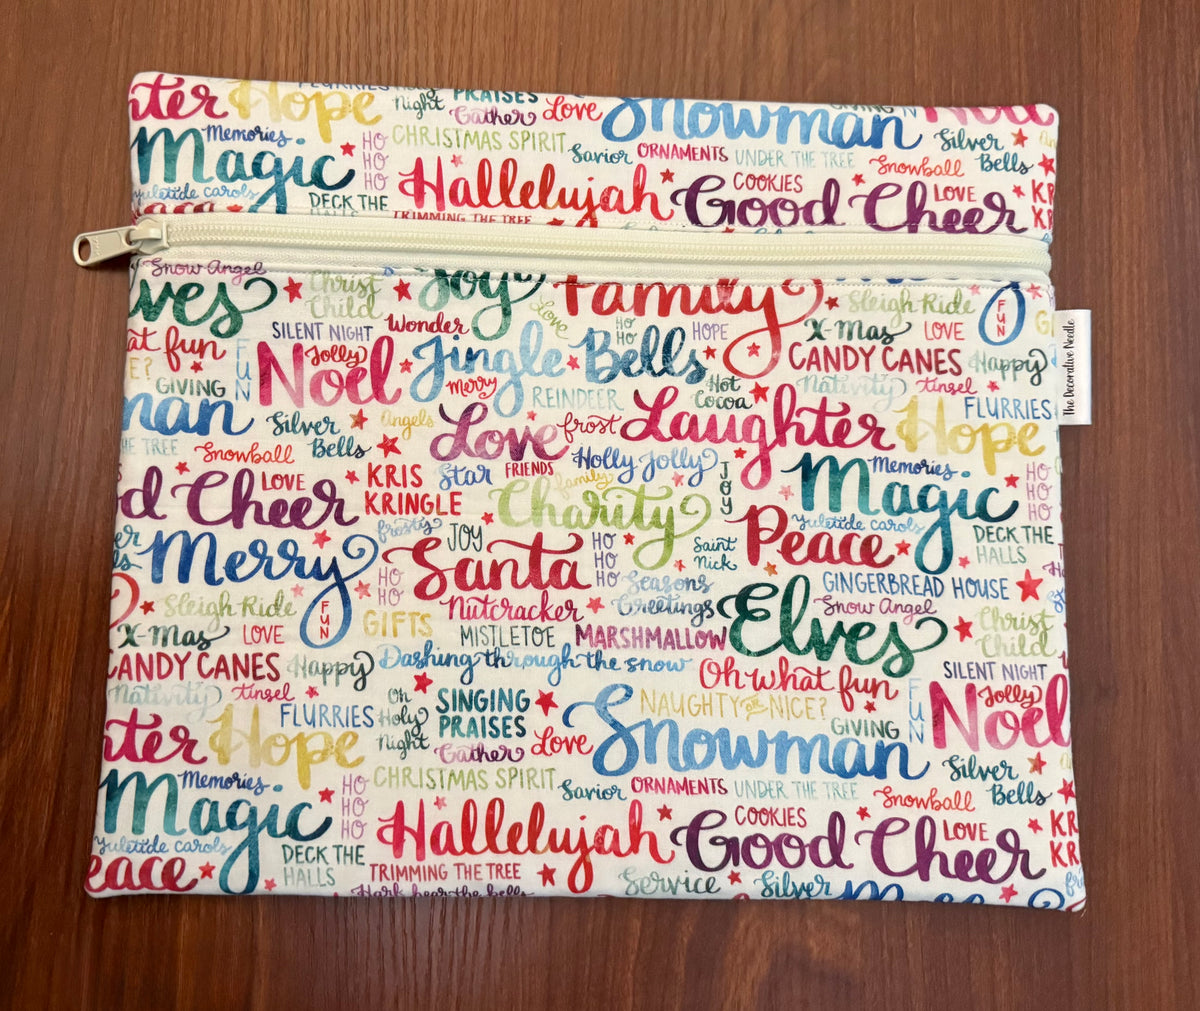 FLURRIES
Night PRAISES
Hope Gather Love Snowman GIVING Noel
Memories HO CHRISTMAS SPIRIT Silver
Magic HO HO Savior ORNAMENTS UNDER THE TREE Snowball Bells
Yuletide carols Hallelujah COOKIES LOVE
DECK THE HALLS Good Cheer
Peace TRIMMING THE TREE
Snow Angel Christ Child Joy Love Family Sleigh Ride FUN
Elves SILENT NIGHT Wonder HO HO HOPE X-Mas LOVE
at fun FUN Noel Jolly Jingle Bells CANDY CANES Happy
E? GIVING Merry REINDEER Hot Cocoa Nativity tinsel
man Silver Bells Angels Love frost Laughter Hope FLURRIES
HE TREE Snowball Star FRIENDS Holly Jolly JOY Memories HO HO HO
d Cheer LOVE KRIS KRINGLE family Charity Magic
frosty JOY Yuletide carols DECK THE HALLS
Merry Santa HO HO HO Saint Nick Peace
HO HO Seasons Greetings GINGERBREAD HOUSE
Sleigh Ride FUN GIFTS Nutcracker Elves Snow Angel Christ Child
X-Mas LOVE MISTLETOE MARSHMALLOW
CANDY CANES Happy Dashing through the snow Oh what fun SILENT NIGHT
Nativity tinsel Oh Holy Night SINGING PRAISES NAUGHTY OR NICE? FUN Noel Jolly
Hope FLURRIES Gather Love Snowman GIVING
Memories HO HO HO CHRISTMAS SPIRIT Savior ORNAMENTS UNDER THE TREE Silver Bells
Magic Hallelujah COOKIES Snowball
Yuletide carols DECK THE HALLS Good Cheer LOVE
Peace TRIMMING THE TREE Service Silver
Hark hear the bells
The Decorative Needle